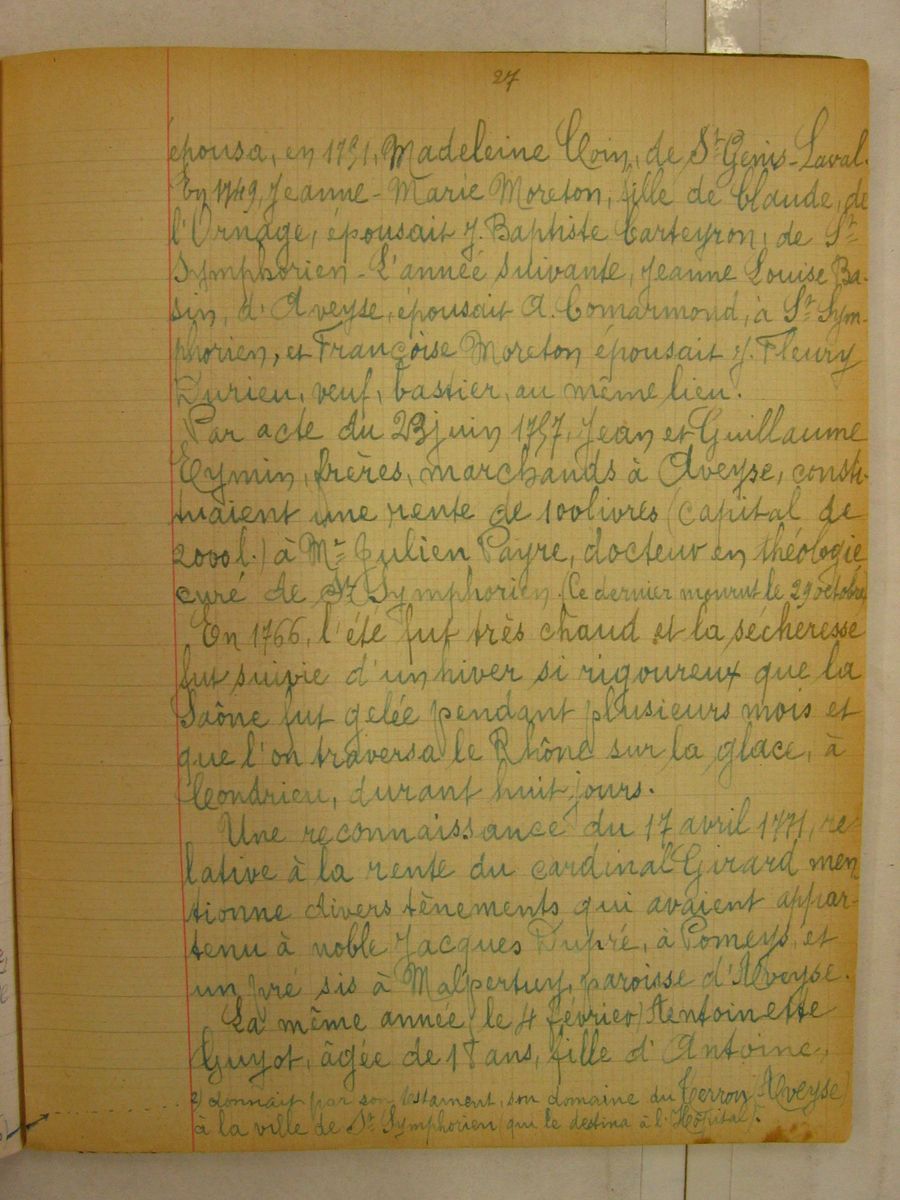 27
épousa, en 1751, Madeleine Coin, de St Genis-Laval.
En 1749, Jeanne-Marie Moreton, fille de Claude, de
l'Ornage, épousait J. Baptiste Carteyron, de St
Symphorien - L'année suivante, Jeanne Louise Ba-
sin, d'Aveyse, épousait A. Comarmond, à St Sym-
phorien, et Françoise Moreton épousait J. Fleury
Durieu, veuf, bastier, au même lieu.
Par acte du 23 juin 1757, Jean et Guillaume
Eymin, frères, marchands à Aveyse, consti-
tuaient une rente de 100 livres (capital de
2000 l.) à Mre Julien Payre, docteur en théologie
curé de St Symphorien. (Ce dernier mourut le 29 octobre)
En 1766, l'été fut très chaud et la sécheresse
fut suivie d'un hiver si rigoureux que la
Saône fut gelée pendant plusieurs mois et
que l'on traversa le Rhône sur la glace, à
Condrieu, durant huit jours.
Une reconnaissance du 17 avril 1771, re-
lative à la rente du cardinal Girard men
tionne divers tènements qui avaient appar-
tenu à noble Jacques Dupré, à Pomeys, et
un pré sis à Malpertuy, paroisse d'Aveyse.
La même année (le 4 février) Antoinette
Guyot, âgée de 18 ans, fille d'Antoine,
2) donnait par son testament, son domaine du Terron (Aveyse)
à la ville de St Symphorien (qui le destina à l'Hôpital).